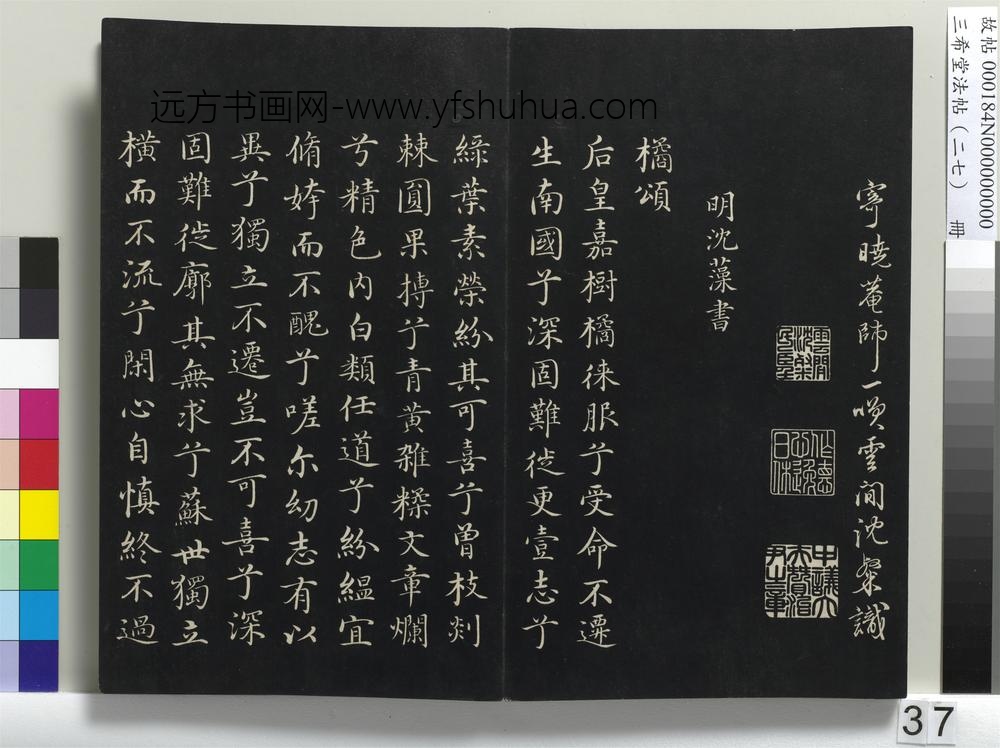 故帖 000184N000000000
三希堂法帖（二七） 冊
寄曉菴師一嘆雲间沈粲識
明沈藻書
橘頌
后皇嘉樹橘徕服兮受命不遷
生南國兮深固難徙更壹志兮
綠葉素榮紛其可喜兮曾枝剡
棘圓果摶兮青黃雜糅文章爛
兮精色内白類任道兮紛緼宜
脩姱而不醜兮嗟尔幼志有以
異兮獨立不遷豈不可喜兮深
固難徙廓其無求兮蘇世獨立
橫而不流兮閑心自慎終不過
远方书画网-www.yfshuhua.com
37